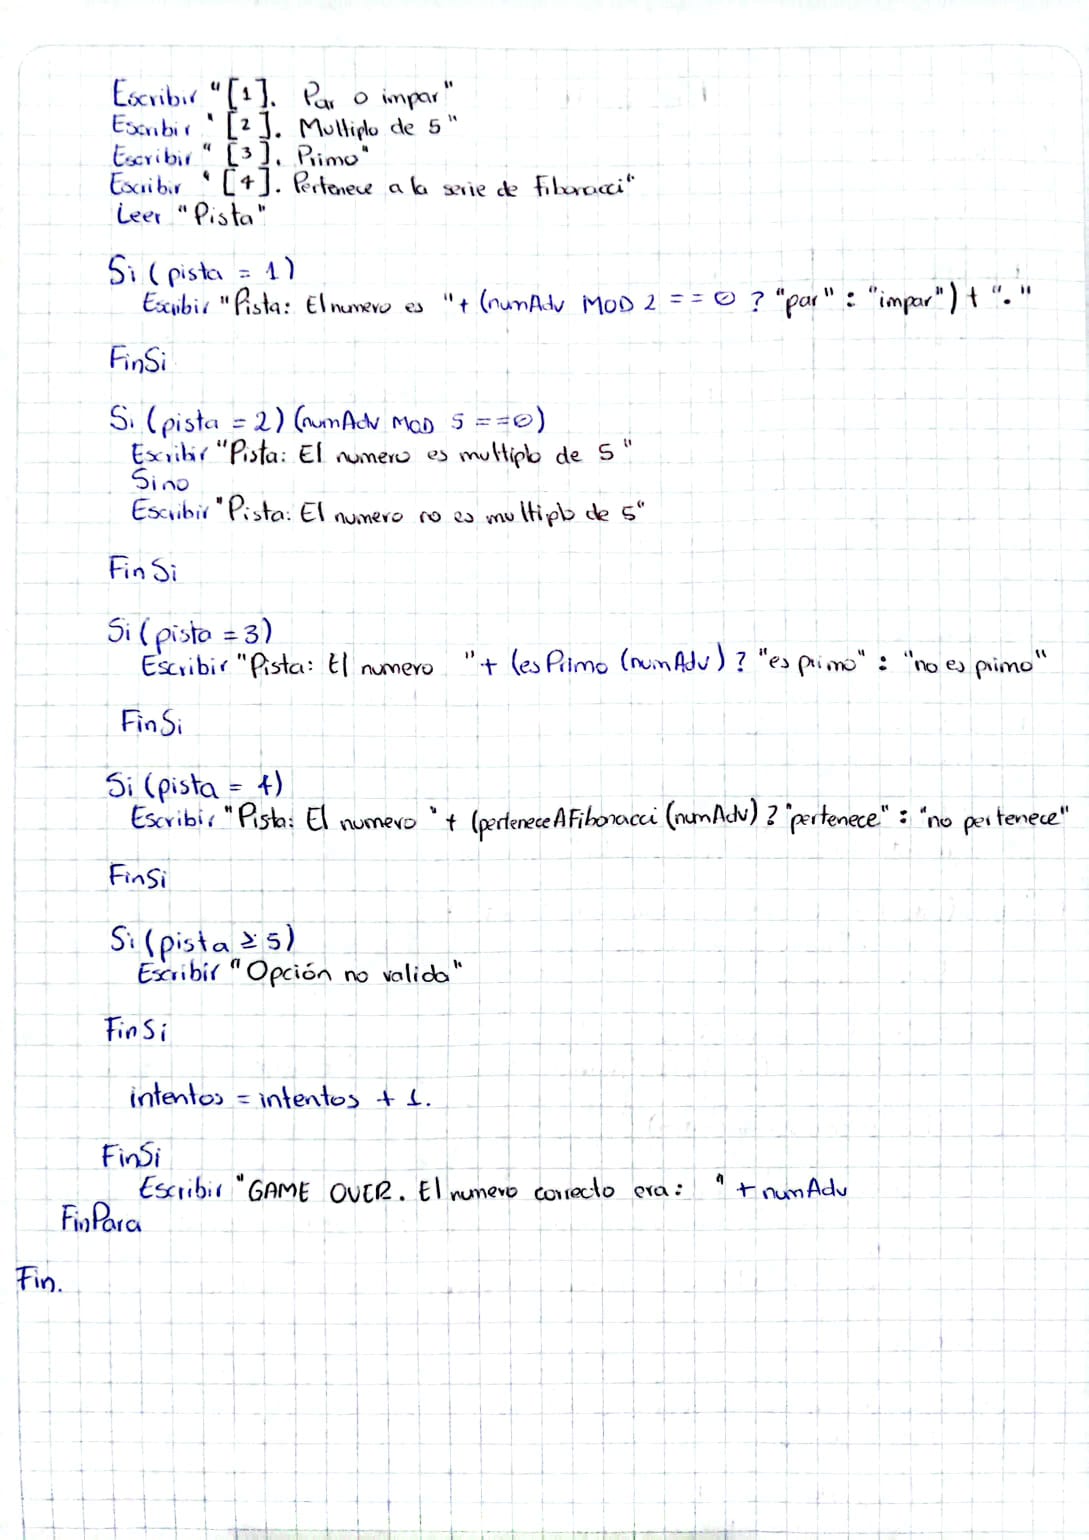 Escribir "[1]. Par o impar"
Escribir "[2]. Multiplo de 5"
Escribir "[3]. Primo"
Escribir "[4]. Pertenece a la serie de Fibonacci"
Leer "Pista"
Si (pista = 1)
Escribir "Pista: El numero es "+ (numAdv MOD 2 == 0 ? "par" : "impar") + "."
FinSi
Si (pista = 2) (numAdv MOD 5 == 0)
Escribir "Pista: El numero es multiplo de 5"
Sino
Escribir "Pista: El numero no es multiplo de 5"
FinSi
Si (pista = 3)
Escribir "Pista: El numero "+ (esPrimo (numAdv) ? "es primo" : "no es primo"
FinSi
Si (pista = 4)
Escribir "Pista: El numero "+ (perteneceAFibonacci (numAdv) ? "pertenece" : "no pertenece"
FinSi
Si (pista ≥ 5)
Escribir "Opción no valida"
FinSi
intentos = intentos + 1.
FinSi
Escribir "GAME OVER. El numero correcto era: " + numAdv
FinPara
Fin.